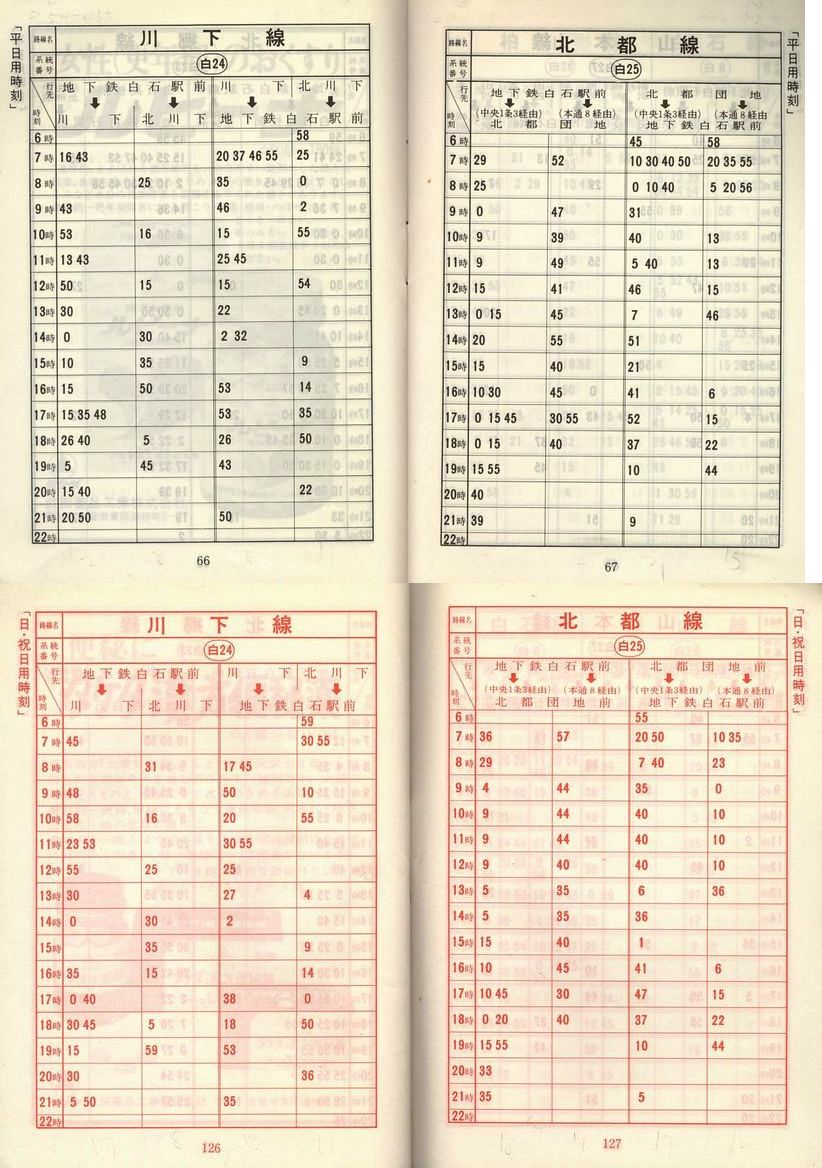 「平日用時刻」
路線名 川下線
系統番号 白24
行先 時刻 地下鉄白石駅前 川下 北川下
川下 北川下 地下鉄白石駅前
6時 58
7時 16 43 20 37 46 55 25
8時 25 35 0
9時 43 46 2
10時 53 16 15 55
11時 13 43 25 45
12時 50 15 15 54
13時 30 22
14時 0 30 2 32
15時 10 35 9
16時 15 50 53 14
17時 15 35 48 53 35
18時 26 40 5 26 50
19時 5 45 43
20時 15 40 22
21時 20 50 50
22時
66
「平日用時刻」
路線名 北都線
系統番号 白25
行先 時刻 地下鉄白石駅前 北都団地
(中央1条3経由) (本通8経由) (中央1条3経由) (本通8経由
北都団地 地下鉄白石駅前
6時 45 58
7時 29 52 10 30 40 50 20 35 55
8時 25 0 10 40 5 20 56
9時 0 47 31
10時 9 39 40 13
11時 9 49 5 40 13
12時 15 41 46 15
13時 0 15 45 7 46
14時 20 55 51
15時 15 40 21
16時 10 30 45 41 6
17時 0 15 45 30 55 52 15
18時 0 15 40 37 22
19時 15 55 10 44
20時 40
21時 39 9
22時
67
「日・祝日用時刻」
路線名 川下線
系統番号 白24
行先 時刻 地下鉄白石駅前 川下 北川下
川下 北川下 地下鉄白石駅前
6時 59
7時 45 30 55
8時 31 17 45
9時 48 50 10
10時 58 16 20 55
11時 23 53 30 55
12時 55 25 25
13時 30 27 4
14時 0 30 2
15時 35 9
16時 35 15 14
17時 0 40 38 0
18時 30 45 5 18 50
19時 15 59 53
20時 30 36
21時 5 50 35
22時
126
「日・祝日用時刻」
路線名 北都線
系統番号 白25
行先 時刻 地下鉄白石駅前 北都団地
(中央1条3経由) (本通8経由) (中央1条3経由) (本通8経由)
北都団地 地下鉄白石駅前
6時 55
7時 36 57 20 50 10 35
8時 29 7 40 23
9時 4 44 35 0
10時 9 44 40 10
11時 9 44 40 10
12時 9 40 40 10
13時 5 35 6 36
14時 5 35 36
15時 15 40 1
16時 10 45 41 6
17時 10 45 30 47 15
18時 0 20 40 37 22
19時 15 55 10 44
20時 33
21時 35 5
22時
127